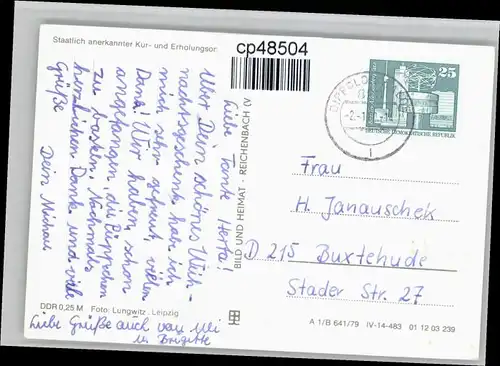 Staatlich anerkannter Kur- und Erholungsor
cp48504
25
DEUTSCHE DEMOKRATISCHE REPUBLIK
Liebe Tante Herta!
Über Dein schönes Weih-
nachtsgeschenk habe ich
mich sehr gefreut, vielen
Dank! Wir haben schon
angefangen, die Püppchen
zu basteln. Nochmals
herzlichen Dank und viele
Grüße
Dein Michael
BILD UND HEIMAT · REICHENBACH (V
Frau
H. Janauschek
D 215 Buxtehude
Stader Str. 27
DDR 0,25 M Foto: Lungwitz, Leipzig
A 1/B 641/79 IV-14-483 01 12 03 239
Liebe Grüße auch von
u. Brigitte